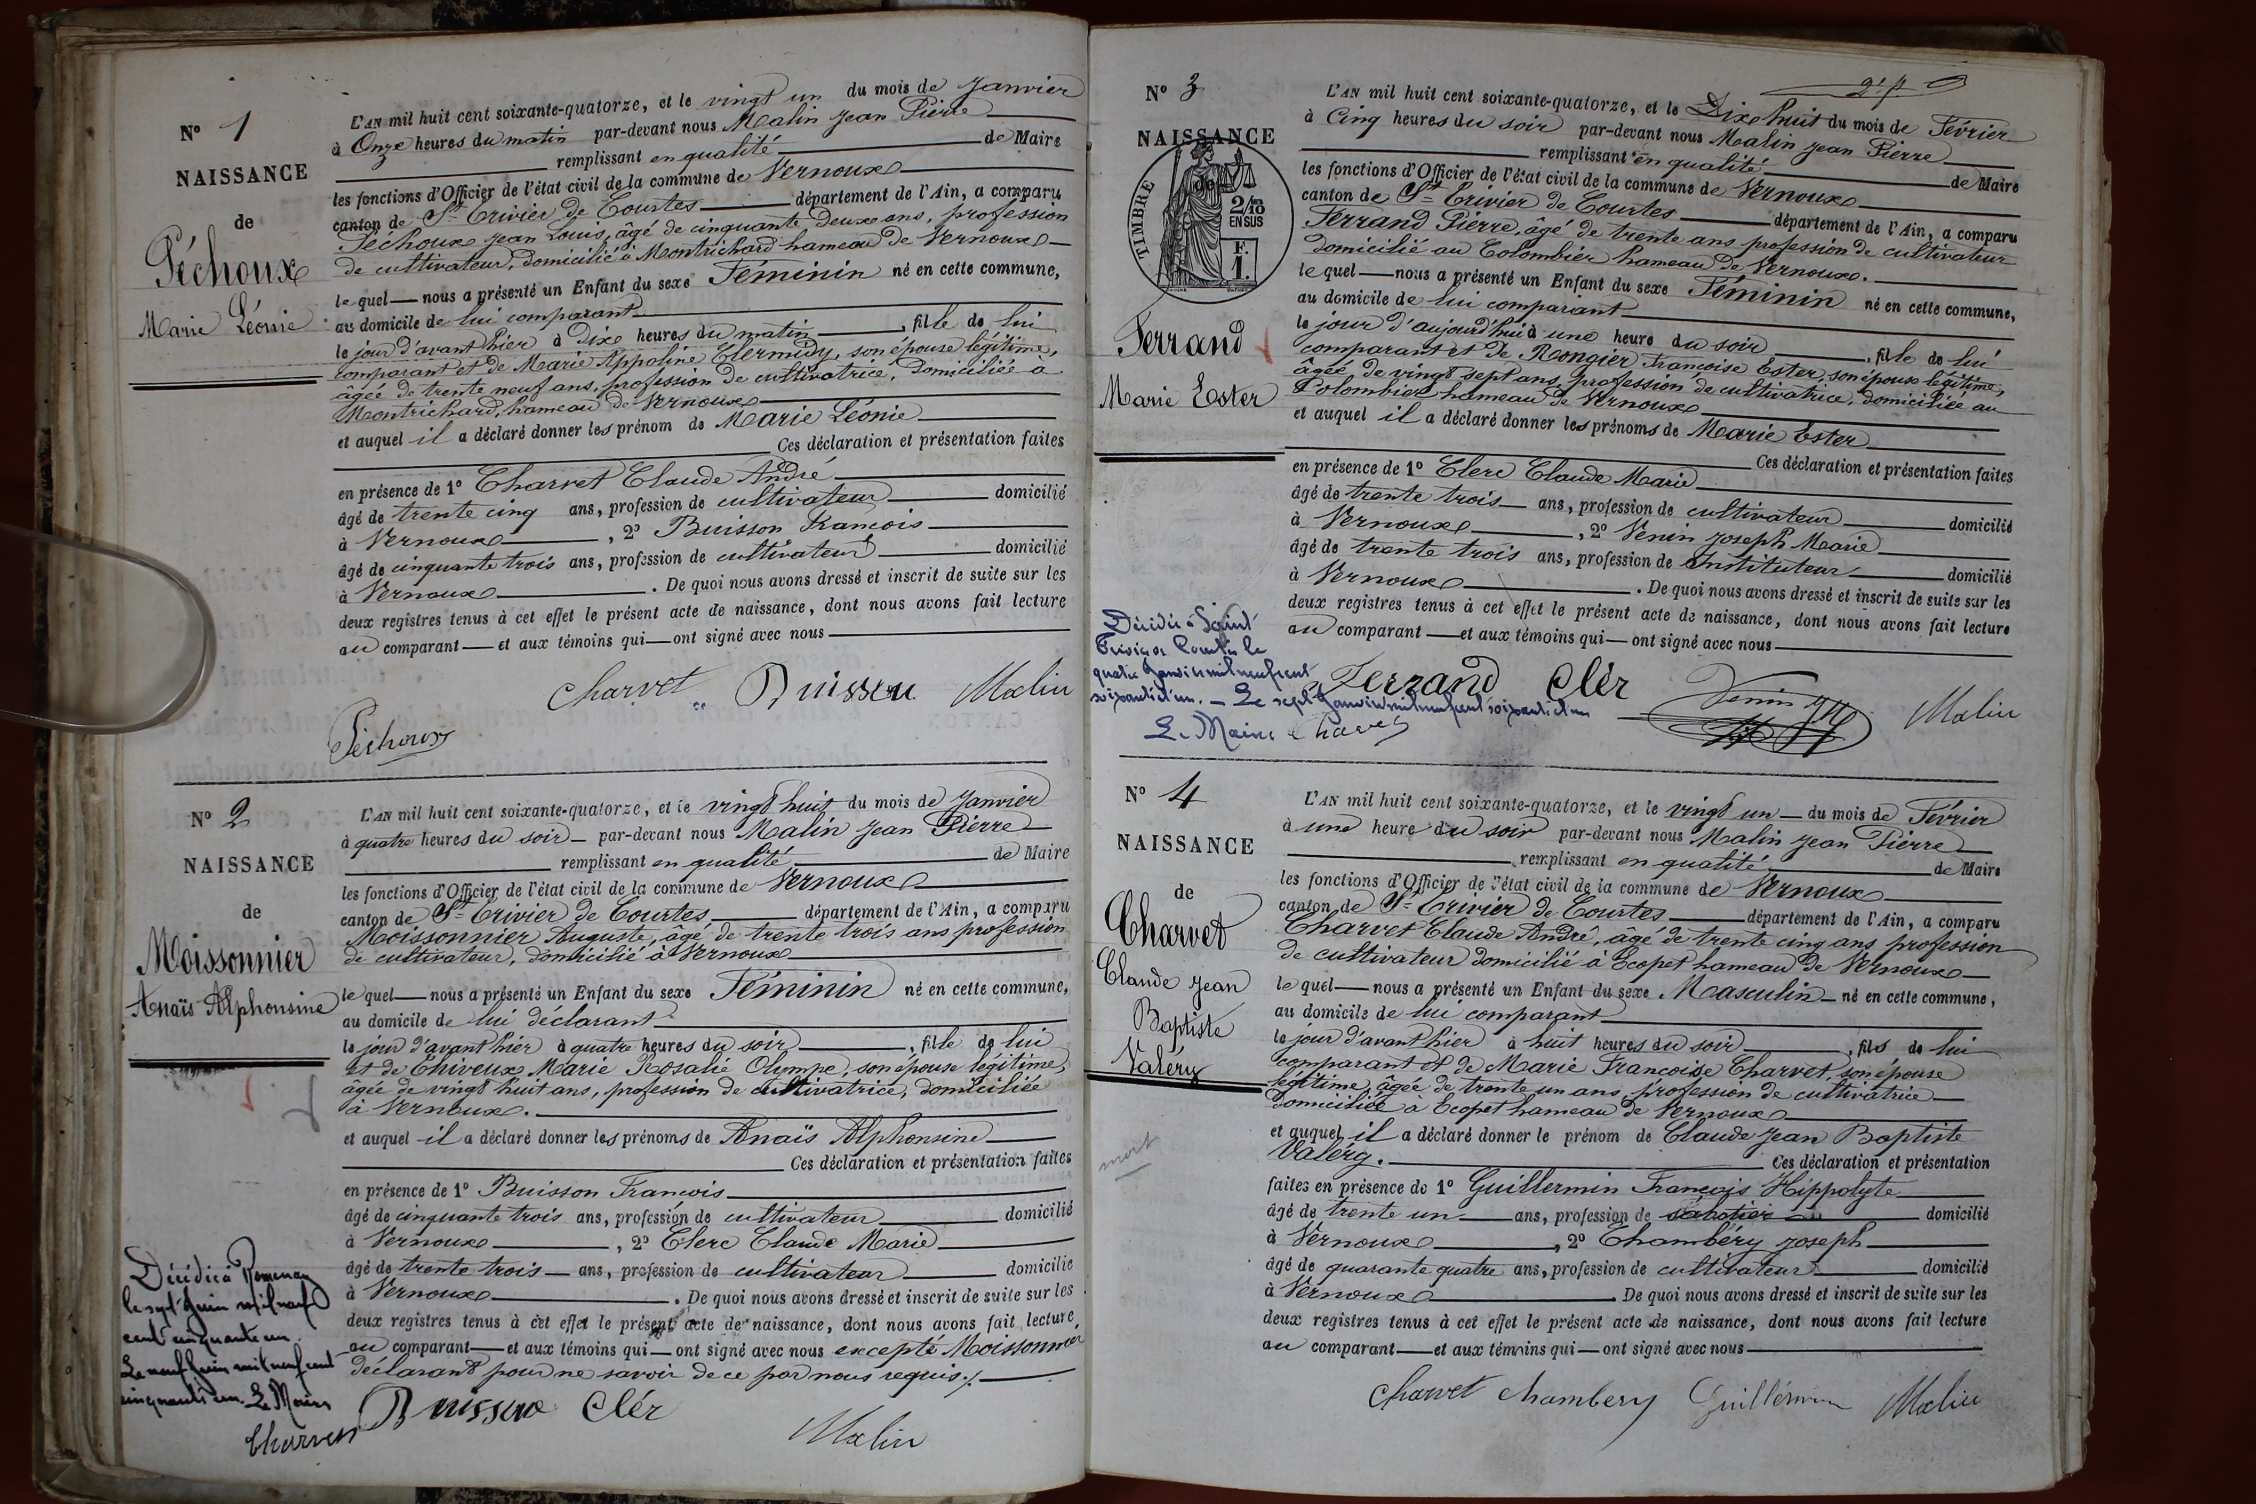 N° 1
NAISSANCE
de
Péchoux
Marie Léonie
L'AN mil huit cent soixante-quatorze, et le vingt un du mois de Janvier
à Onze heures du matin par-devant nous Malin Jean Pierre
remplissant en qualité de Maire
les fonctions d'Officier de l'état civil de la commune de Vernoux
canton de St Trivier de Courtes département de l'Ain, a comparu
Péchoux Jean Louis, âgé de cinquante deux ans, profession
de cultivateur, domicilié à Montrichard hameau de Vernoux
lequel nous a présenté un Enfant du sexe Féminin né en cette commune,
au domicile de lui comparant
le jour d'avant hier à Dix heures du matin, fille de lui
comparant et de Marie Appoline Clermidy, son épouse légitime,
âgée de trente neuf ans, profession de cultivatrice, domiciliée à
Montrichard, hameau de Vernoux
et auquel il a déclaré donner les prénom de Marie Léonie
Ces déclaration et présentation faites
en présence de 1° Charvet Claude André
âgé de trente cinq ans, profession de cultivateur domicilié
à Vernoux, 2° Buisson Francois
âgé de cinquante trois ans, profession de cultivateur domicilié
à Vernoux. De quoi nous avons dressé et inscrit de suite sur les
deux registres tenus à cet effet le présent acte de naissance, dont nous avons fait lecture
au comparant et aux témoins qui ont signé avec nous
Charvet Buisson Malin
Péchoux
N° 2
NAISSANCE
de
Moissonnier
Anaïs Alphonsine
L'AN mil huit cent soixante-quatorze, et le vingt huit du mois de Janvier
à quatre heures du soir par-devant nous Malin Jean Pierre
remplissant en qualité de Maire
les fonctions d'Officier de l'état civil de la commune de Vernoux
canton de St Trivier de Courtes département de l'Ain, a comparu
Moissonnier Auguste, âgé de trente trois ans profession
de cultivateur, domicilié à Vernoux
lequel nous a présenté un Enfant du sexe Féminin né en cette commune,
au domicile de lui déclarant
le jour d'avant hier à quatre heures du soir, fille de lui
et de Thiveux Marie Rosalie Olympe, son épouse légitime,
âgée de vingt huit ans, profession de cultivatrice, domiciliée
à Vernoux.
et auquel il a déclaré donner les prénoms de Anaïs Alphonsine
Ces déclaration et présentation faites
en présence de 1° Buisson Francois
âgé de cinquante trois ans, profession de cultivateur domicilié
à Vernoux, 2° Clerc Claude Marie
âgé de trente trois ans, profession de cultivateur domicilié
à Vernoux. De quoi nous avons dressé et inscrit de suite sur les
deux registres tenus à cet effet le présent acte de naissance, dont nous avons fait lecture
au comparant et aux témoins qui ont signé avec nous excepté Moissonnier
déclarant pour ne savoir de ce par nous requis./.
Buisson Clér
Malin
Décédée à Romenay
le sept Juin mil neuf
cent cinquante un.
Le neuf Juin mil neuf cent
cinquante un. Le Maire
Charvet
N° 3
NAISSANCE
TIMBRE
de
2/10 EN SUS
F. 1.
Ferrand
Marie Ester
2e f.
L'AN mil huit cent soixante-quatorze, et le Dix huit du mois de Février
à Cinq heures du soir par-devant nous Malin Jean Pierre
remplissant en qualité de Maire
les fonctions d'Officier de l'état civil de la commune de Vernoux
canton de St Trivier de Courtes département de l'Ain, a comparu
Ferrand Pierre, âgé de trente ans profession de cultivateur
domicilié au Colombier hameau de Vernoux.
lequel nous a présenté un Enfant du sexe Féminin né en cette commune,
au domicile de lui comparant
le jour d'aujourd'hui à une heure du soir, fille de lui
comparant et de Rongier Francoise Ester, son épouse légitime,
âgée de vingt sept ans, profession de cultivatrice, domiciliée au
Colombier hameau de Vernoux
et auquel il a déclaré donner les prénoms de Marie Ester
Ces déclaration et présentation faites
en présence de 1° Clerc Claude Marie
âgé de trente trois ans, profession de cultivateur domicilié
à Vernoux, 2° Venin Joseph Marie
âgé de trente trois ans, profession de Instituteur domicilié
à Vernoux. De quoi nous avons dressé et inscrit de suite sur les
deux registres tenus à cet effet le présent acte de naissance, dont nous avons fait lecture
au comparant et aux témoins qui ont signé avec nous
Ferrand Clér Venin Malin
Décédée à Saint
Trivier de Courtes le
quatre Janvier mil neuf cent
soixante et un. - Le sept Janvier mil neuf cent soixante et un
Le Maire Charvet
N° 4
NAISSANCE
de
Charvet
Claude Jean
Baptiste
Valéry
mort
L'AN mil huit cent soixante-quatorze, et le vingt un du mois de Février
à une heure du soir par-devant nous Malin Jean Pierre
remplissant en qualité de Maire
les fonctions d'Officier de l'état civil de la commune de Vernoux
canton de St Trivier de Courtes département de l'Ain, a comparu
Charvet Claude André, âgé de trente cinq ans profession
de cultivateur domicilié à Ecopet hameau de Vernoux
lequel nous a présenté un Enfant du sexe Masculin né en cette commune,
au domicile de lui comparant
le jour d'avant hier à huit heures du soir, fils de lui
comparant et de Marie Francoise Charvet, son épouse
légitime, âgée de trente un ans, profession de cultivatrice
domiciliée à Ecopet hameau de Vernoux
et auquel il a déclaré donner le prénom de Claude Jean Baptiste
Valéry. Ces déclaration et présentation
faites en présence de 1° Guillermin Francois Hippolyte
âgé de trente un ans, profession de sabotier domicilié
à Vernoux, 2° Chambéry Joseph
âgé de quarante quatre ans, profession de cultivateur domicilié
à Vernoux. De quoi nous avons dressé et inscrit de suite sur les
deux registres tenus à cet effet le présent acte de naissance, dont nous avons fait lecture
au comparant et aux témoins qui ont signé avec nous
Charvet Chambery Guillermin Malin